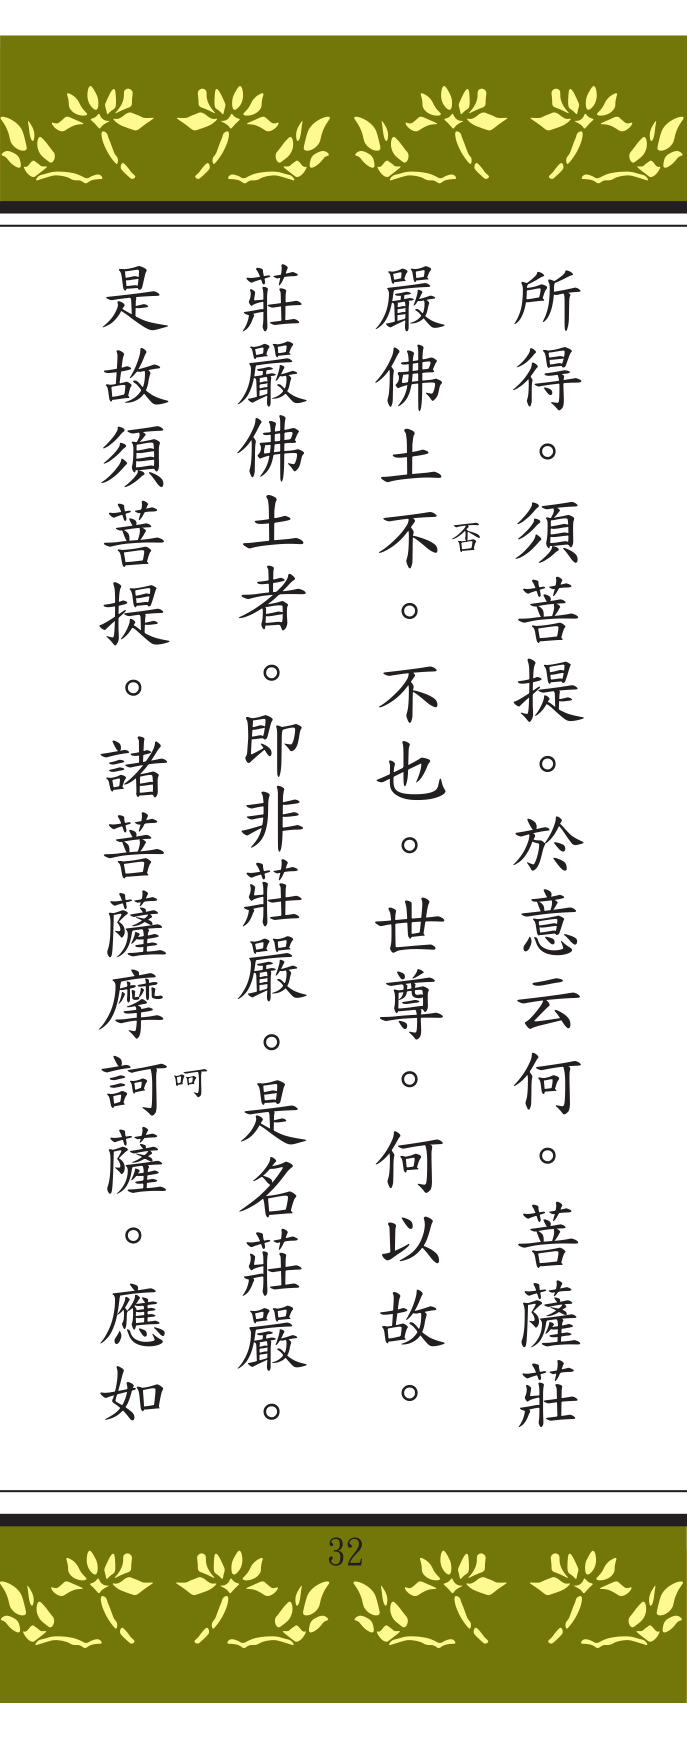 所得。須菩提。於意云何。菩薩莊
嚴佛土不。不也。世尊。何以故。
否
莊嚴佛土者。即非莊嚴。是名莊嚴。
是故須菩提。諸菩薩摩訶薩。應如
呵
32